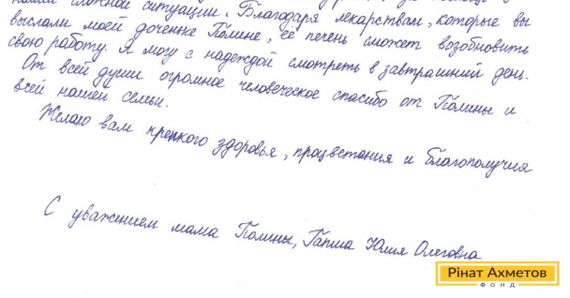 нашей сложной ситуации. Благодаря лекарствам, которые вы
выслали моей доченьке Полине, её печень сможет возобновить
свою работу. Я могу с надеждой смотреть в завтрашний день.
От всей души огромное человеческое спасибо от Полины и
всей нашей семьи.
Желаю вам крепкого здоровья, процветания и благополучия
С уважением мама Полины, Гапша Юлия Олеговна
Рінат Ахметов
ФОНД